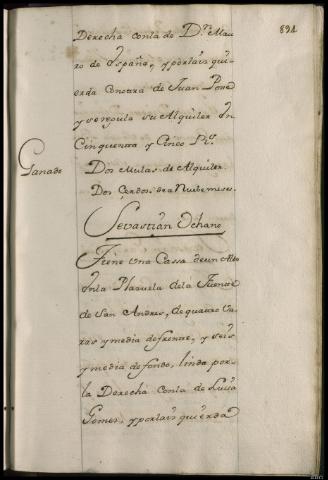 891
Derecha con la de Dn. Mau
ro de España, y por la izqui
erda con otra de Juan Pone
y se regula su Alquiler En
Cinquenta y Cinco Rs.
Ganado
Dos Mulas de Alquiler
Dos Cerdos de a Nuebe meses.
Sebastian Ochano
Tiene Una Cassa de un Alto
en la Plazuela de la Fuente
de San Andres, de quatro Va
ras y media de frente, y seis
y media de fondo, linda por
la Derecha con la de Lucia
Gomez, y por la izquierda